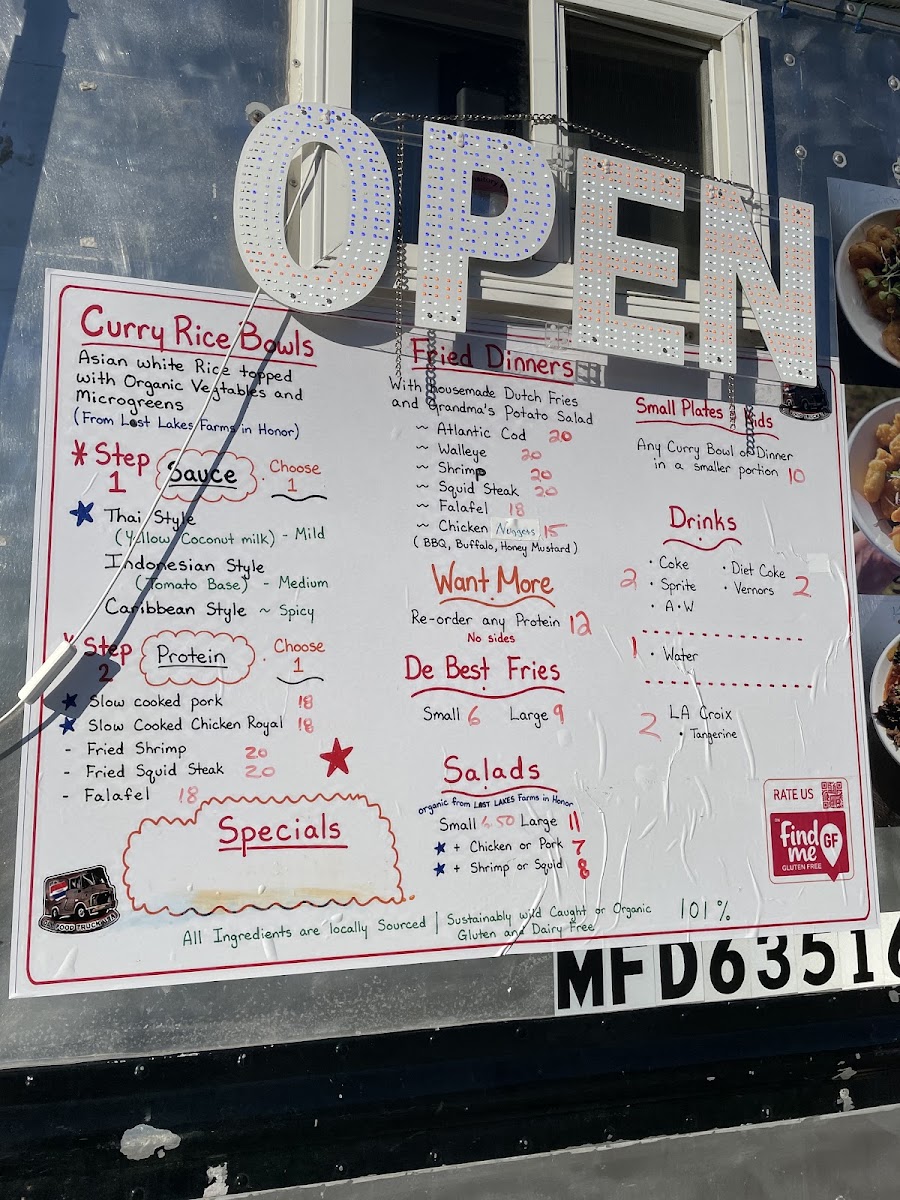 OPEN
Curry Rice Bowls
Asian white Rice topped
with Organic Vegtables and
Microgreens
(From Lost Lakes Farms in Honor)
* Step 1
Sauce
Choose 1
★ Thai Style
(Yellow Coconut milk) - Mild
Indonesian Style
(Tomato Base) - Medium
Caribbean Style ~ Spicy
* Step 2
Protein
Choose 1
★ Slow cooked pork 18
★ Slow Cooked Chicken Royal 18
- Fried Shrimp 20
- Fried Squid Steak 20
- Falafel 18
Specials
Fried Dinners
With housemade Dutch Fries
and Grandma's Potato Salad
~ Atlantic Cod 20
~ Walleye 20
~ Shrimp 20
~ Squid Steak 20
~ Falafel 18
~ Chicken Nuggets 15
(BBQ, Buffalo, Honey Mustard)
Want More
Re-order any Protein 12
No sides
De Best Fries
Small 6 Large 9
Salads
organic from LOST LAKES Farms in Honor
Small 6.50 Large 11
★ + Chicken or Pork 7
★ + Shrimp or Squid 8
Small Plates Kids
Any Curry Bowl or Dinner
in a smaller portion 10
Drinks
2 • Coke • Diet Coke
• Sprite • Vernors 2
• A•W
1 • Water
2 LA Croix
• Tangerine
RATE US
ON
find me GF
GLUTEN FREE
All Ingredients are locally Sourced | Sustainably wild Caught or Organic 101%
Gluten and Dairy Free
MFD63516